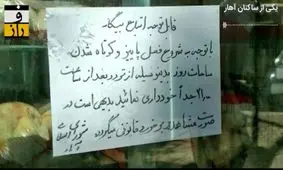 یکی از ساکنان اهار
فراز
قابل توجه اتباع بیگانه
با توجه به شروع فصل پاییز و کوتاه شدن
ساعات روز بدینوسیله از تردد بعد از ساعت
۲۱:۰۰ جداً خودداری نمائید بدیهی است در
صورت مشاهده برخورد قانونی میگردد
شورای اسلامی